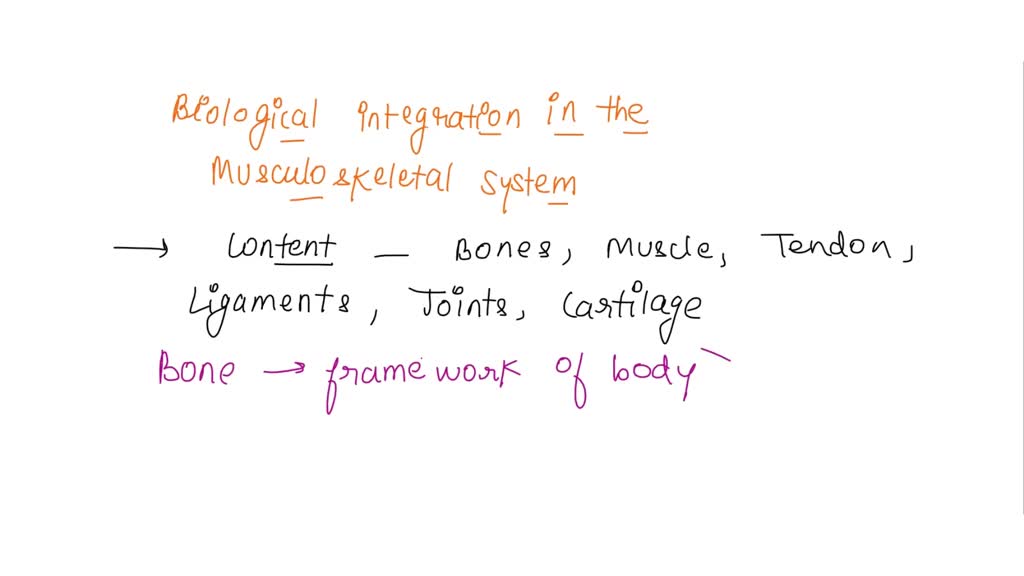 Biological integration in the
Musculoskeletal system
→ Content — Bones, Muscle, Tendon,
Ligaments, Joints, Cartilage
Bone → framework of body